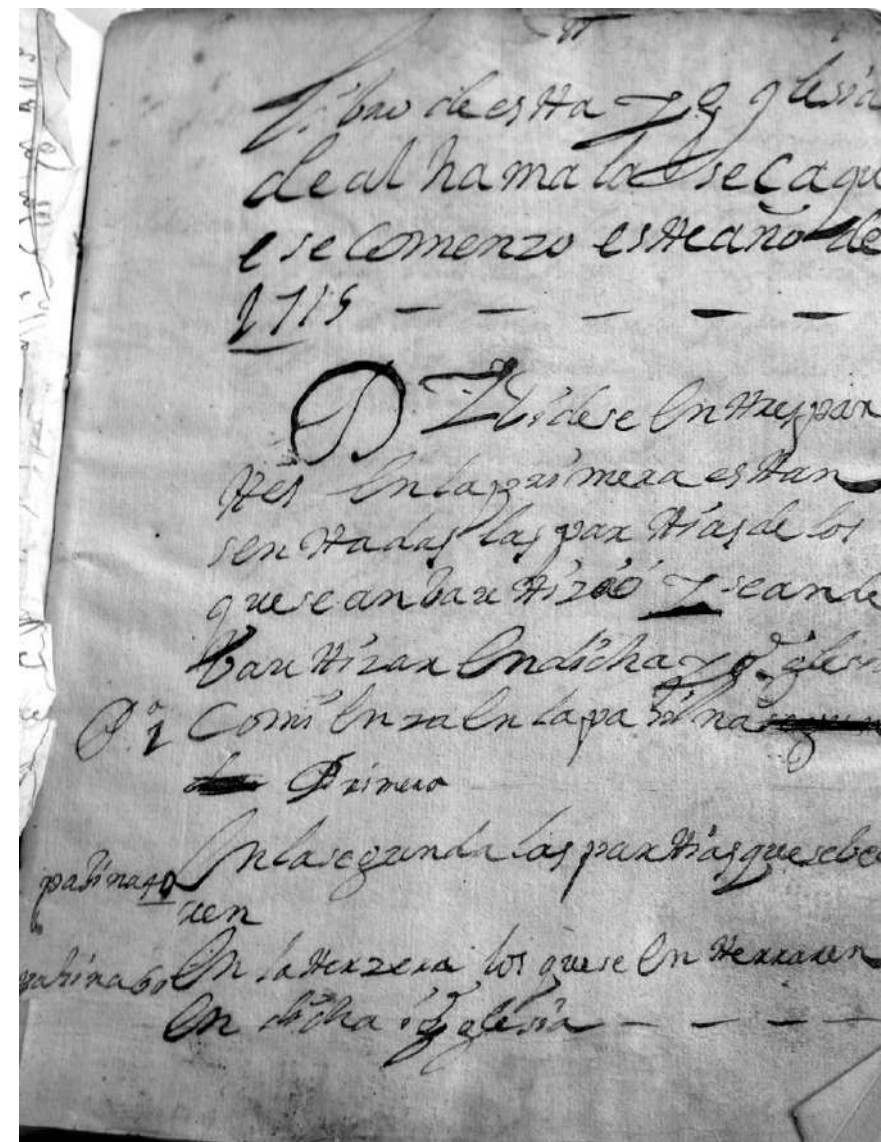 Libro de estta Yg glesia
de al hama la Seca qu
e se Comenzo estte año de
1715 — — — — —
DIbidese En ttres par
ttes En la primera esttan
sen ttadas las par ttias de los
que se an bau ttizdo Y se an de
bau ttizar En dicha Yg. glesi
P.a 1 Comi En za En la pa Jina
Primero
pajina 40 En la segunda las parttias que sebe
ren
pajina 60 En la tterzera los que se En tterraren
En dicha ig glesia — — — —